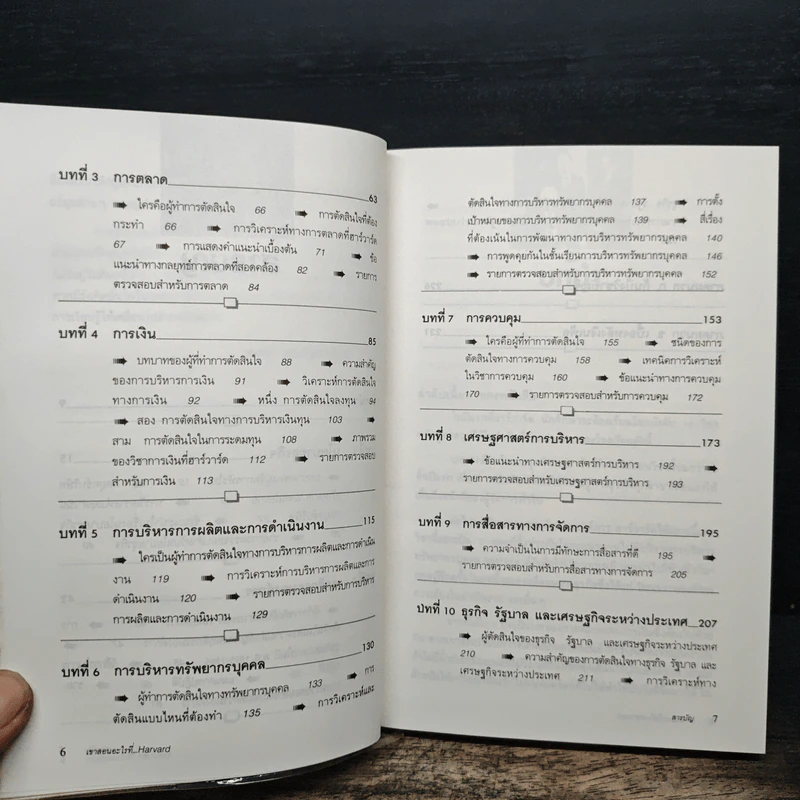 บทที่ 3 การตลาด 63
ใครคือผู้ทำการตัดสินใจ 66 การตัดสินใจที่ต้อง
กระทำ 66 การวิเคราะห์ทางการตลาดที่ฮาร์วาร์ด
67 การแสดงคำแนะนำเบื้องต้น 71 ข้อ
แนะนำทางกลยุทธ์การตลาดที่สอดคล้อง 82 รายการ
ตรวจสอบสำหรับการตลาด 84
บทที่ 4 การเงิน 85
บทบาทของผู้ที่ทำการตัดสินใจ 88 ความสำคัญ
ของการบริหารการเงิน 91 วิเคราะห์การตัดสินใจ
ทางการเงิน 92 หนึ่ง การตัดสินใจลงทุน 94
สอง การตัดสินใจทางการบริหารเงินทุน 103
สาม การตัดสินใจในการระดมทุน 108 ภาพรวม
ของวิชาการเงินที่ฮาร์วาร์ด 112 รายการตรวจสอบ
สำหรับการเงิน 113
บทที่ 5 การบริหารการผลิตและการดำเนินงาน 115
ใครเป็นผู้ทำการตัดสินใจทางการบริหารการผลิตและการดำเนิน
งาน 119 การวิเคราะห์การบริหารการผลิตและการ
ดำเนินงาน 120 รายการตรวจสอบสำหรับการบริหาร
การผลิตและการดำเนินงาน 129
บทที่ 6 การบริหารทรัพยากรบุคคล 130
ผู้ทำการตัดสินใจทางทรัพยากรบุคคล 133 การ
ตัดสินแบบไหนที่ต้องทำ 135 การวิเคราะห์และ
6 เขาสอนอะไรที่...Harvard
ตัดสินใจทางการบริหารทรัพยากรบุคคล 137 การตั้ง
เป้าหมายของการบริหารทรัพยากรบุคคล 139 สี่เรื่อง
ที่ต้องเน้นในการพัฒนาทางการบริหารทรัพยากรบุคคล 140
การพูดคุยกันในชั้นเรียนการบริหารทรัพยากรบุคคล 146
รายการตรวจสอบสำหรับการบริหารทรัพยากรบุคคล 152
บทที่ 7 การควบคุม 153
ใครคือผู้ที่ทำการตัดสินใจ 155 ชนิดของการ
ตัดสินใจทางการควบคุม 158 เทคนิคการวิเคราะห์
ในวิชาการควบคุม 160 ข้อแนะนำทางการควบคุม
170 รายการตรวจสอบสำหรับการควบคุม 172
บทที่ 8 เศรษฐศาสตร์การบริหาร 173
ข้อแนะนำทางเศรษฐศาสตร์การบริหาร 192
รายการตรวจสอบสำหรับเศรษฐศาสตร์การบริหาร 193
บทที่ 9 การสื่อสารทางการจัดการ 195
ความจำเป็นในการมีทักษะการสื่อสารที่ดี 195
รายการตรวจสอบสำหรับการสื่อสารทางการจัดการ 205
บทที่ 10 ธุรกิจ รัฐบาล และเศรษฐกิจระหว่างประเทศ 207
ผู้ตัดสินใจของธุรกิจ รัฐบาล และเศรษฐกิจระหว่างประเทศ
210 ความสำคัญของการตัดสินใจทางธุรกิจ รัฐบาล และ
เศรษฐกิจระหว่างประเทศ 211 การวิเคราะห์ทาง
สารบัญ 7